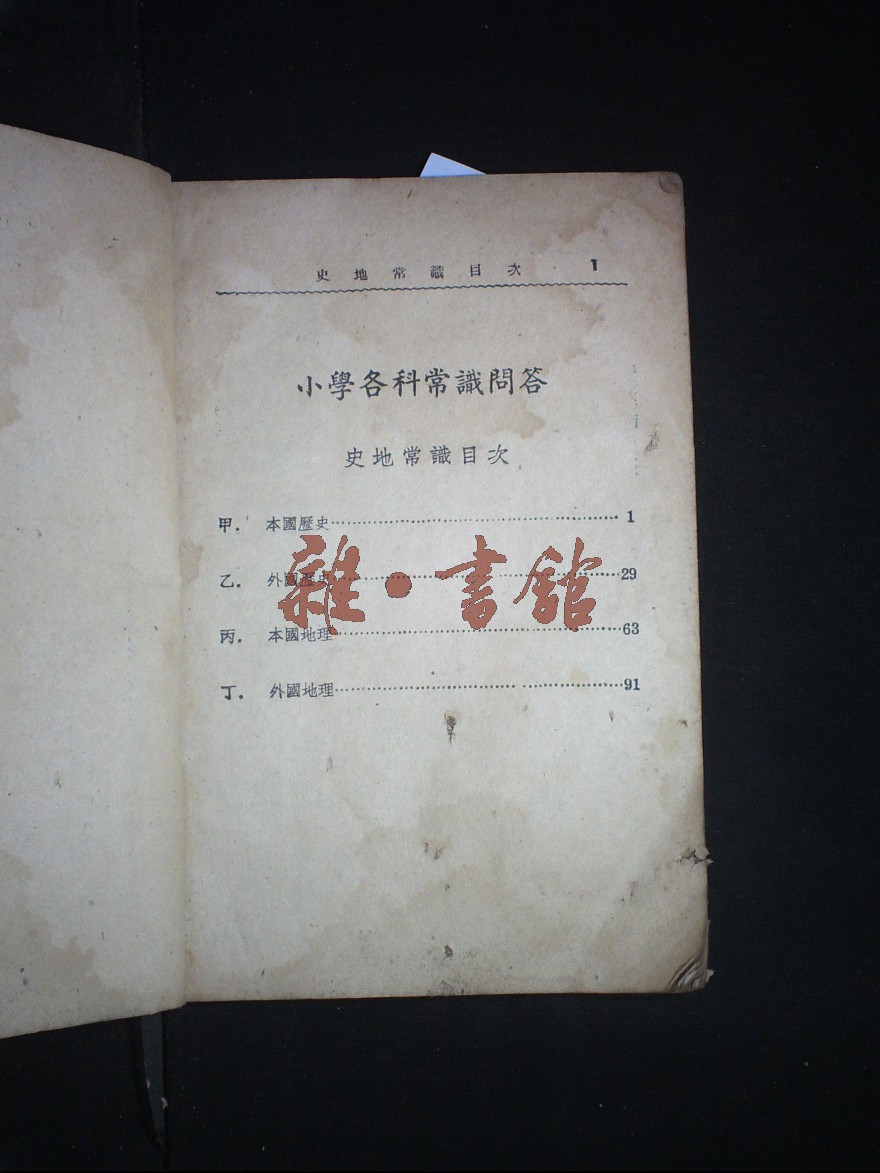 史地常識目次 1
小學各科常識問答
史地常識目次
甲. 本國歷史 1
乙. 外國歷史 29
丙. 本國地理 63
丁. 外國地理 91
雜·書館